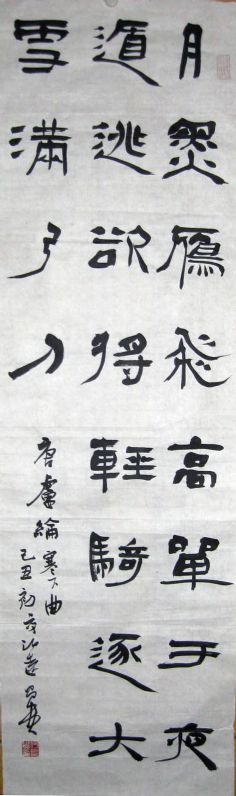 月黑雁飛高單于夜
遁逃欲将輕騎逐大
雪满弓刀
唐盧綸塞下曲
己丑初